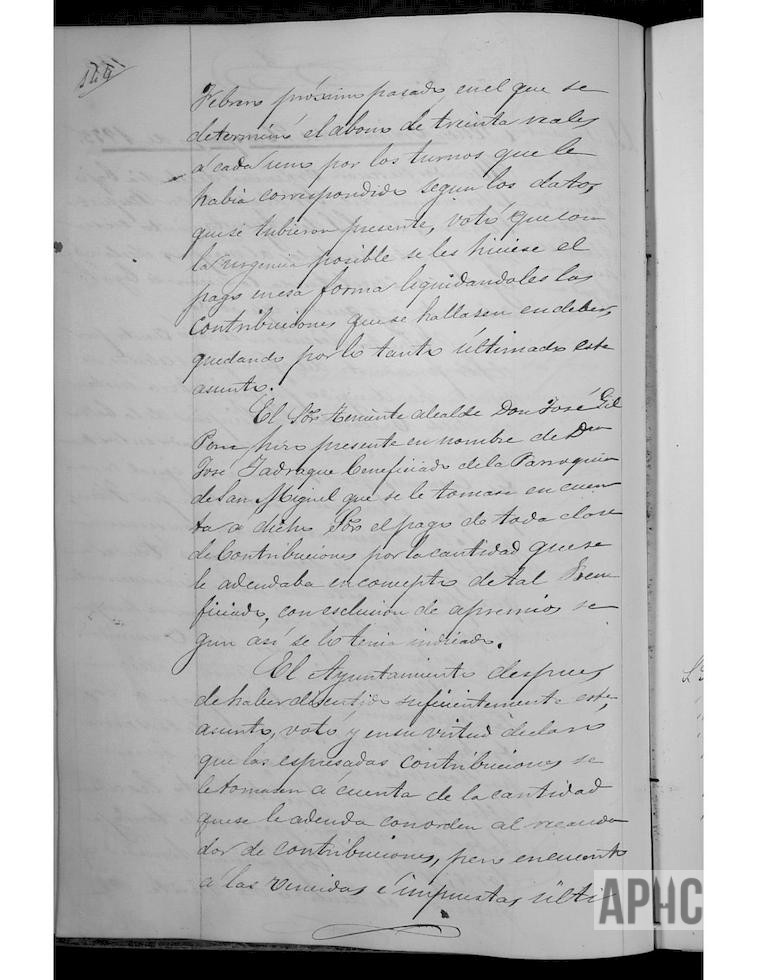 Febrero próximo pasado en el que se
determinó el abono de treinta reales
á cada uno por los turnos que le
habia correspondido segun los datos
que se tubieron presente, votó que con
la urgencia posible se les hiciese el
pago en esa forma liquidandoles las
contribuciones que se hallasen en deber,
quedando por lo tanto últimado este
asunto.
El Sor Teniente alcalde Don José Gil
hizo presente en nombre de Don
José Jadraque beneficiado de la Parroquia
de San Miguel que se le tomase en cuen
ta á dicho Sor el pago de toda clase
de Contribuciones por la cantidad que se
le adeudaba en concepto de tal Bene
ficiado, con esclusion de apremios se
gun asi se lo tenia indicado.
El Ayuntamiento despues
de haber discutido suficientemente este
asunto, votó y en su virtud declaró
que las espresadas contribuciones se
le tomasen á cuenta de la cantidad
que se le adeuda con orden al recauda
dor de contribuciones, pero en cuanto
á las vencidas é impuestas últi
APHC